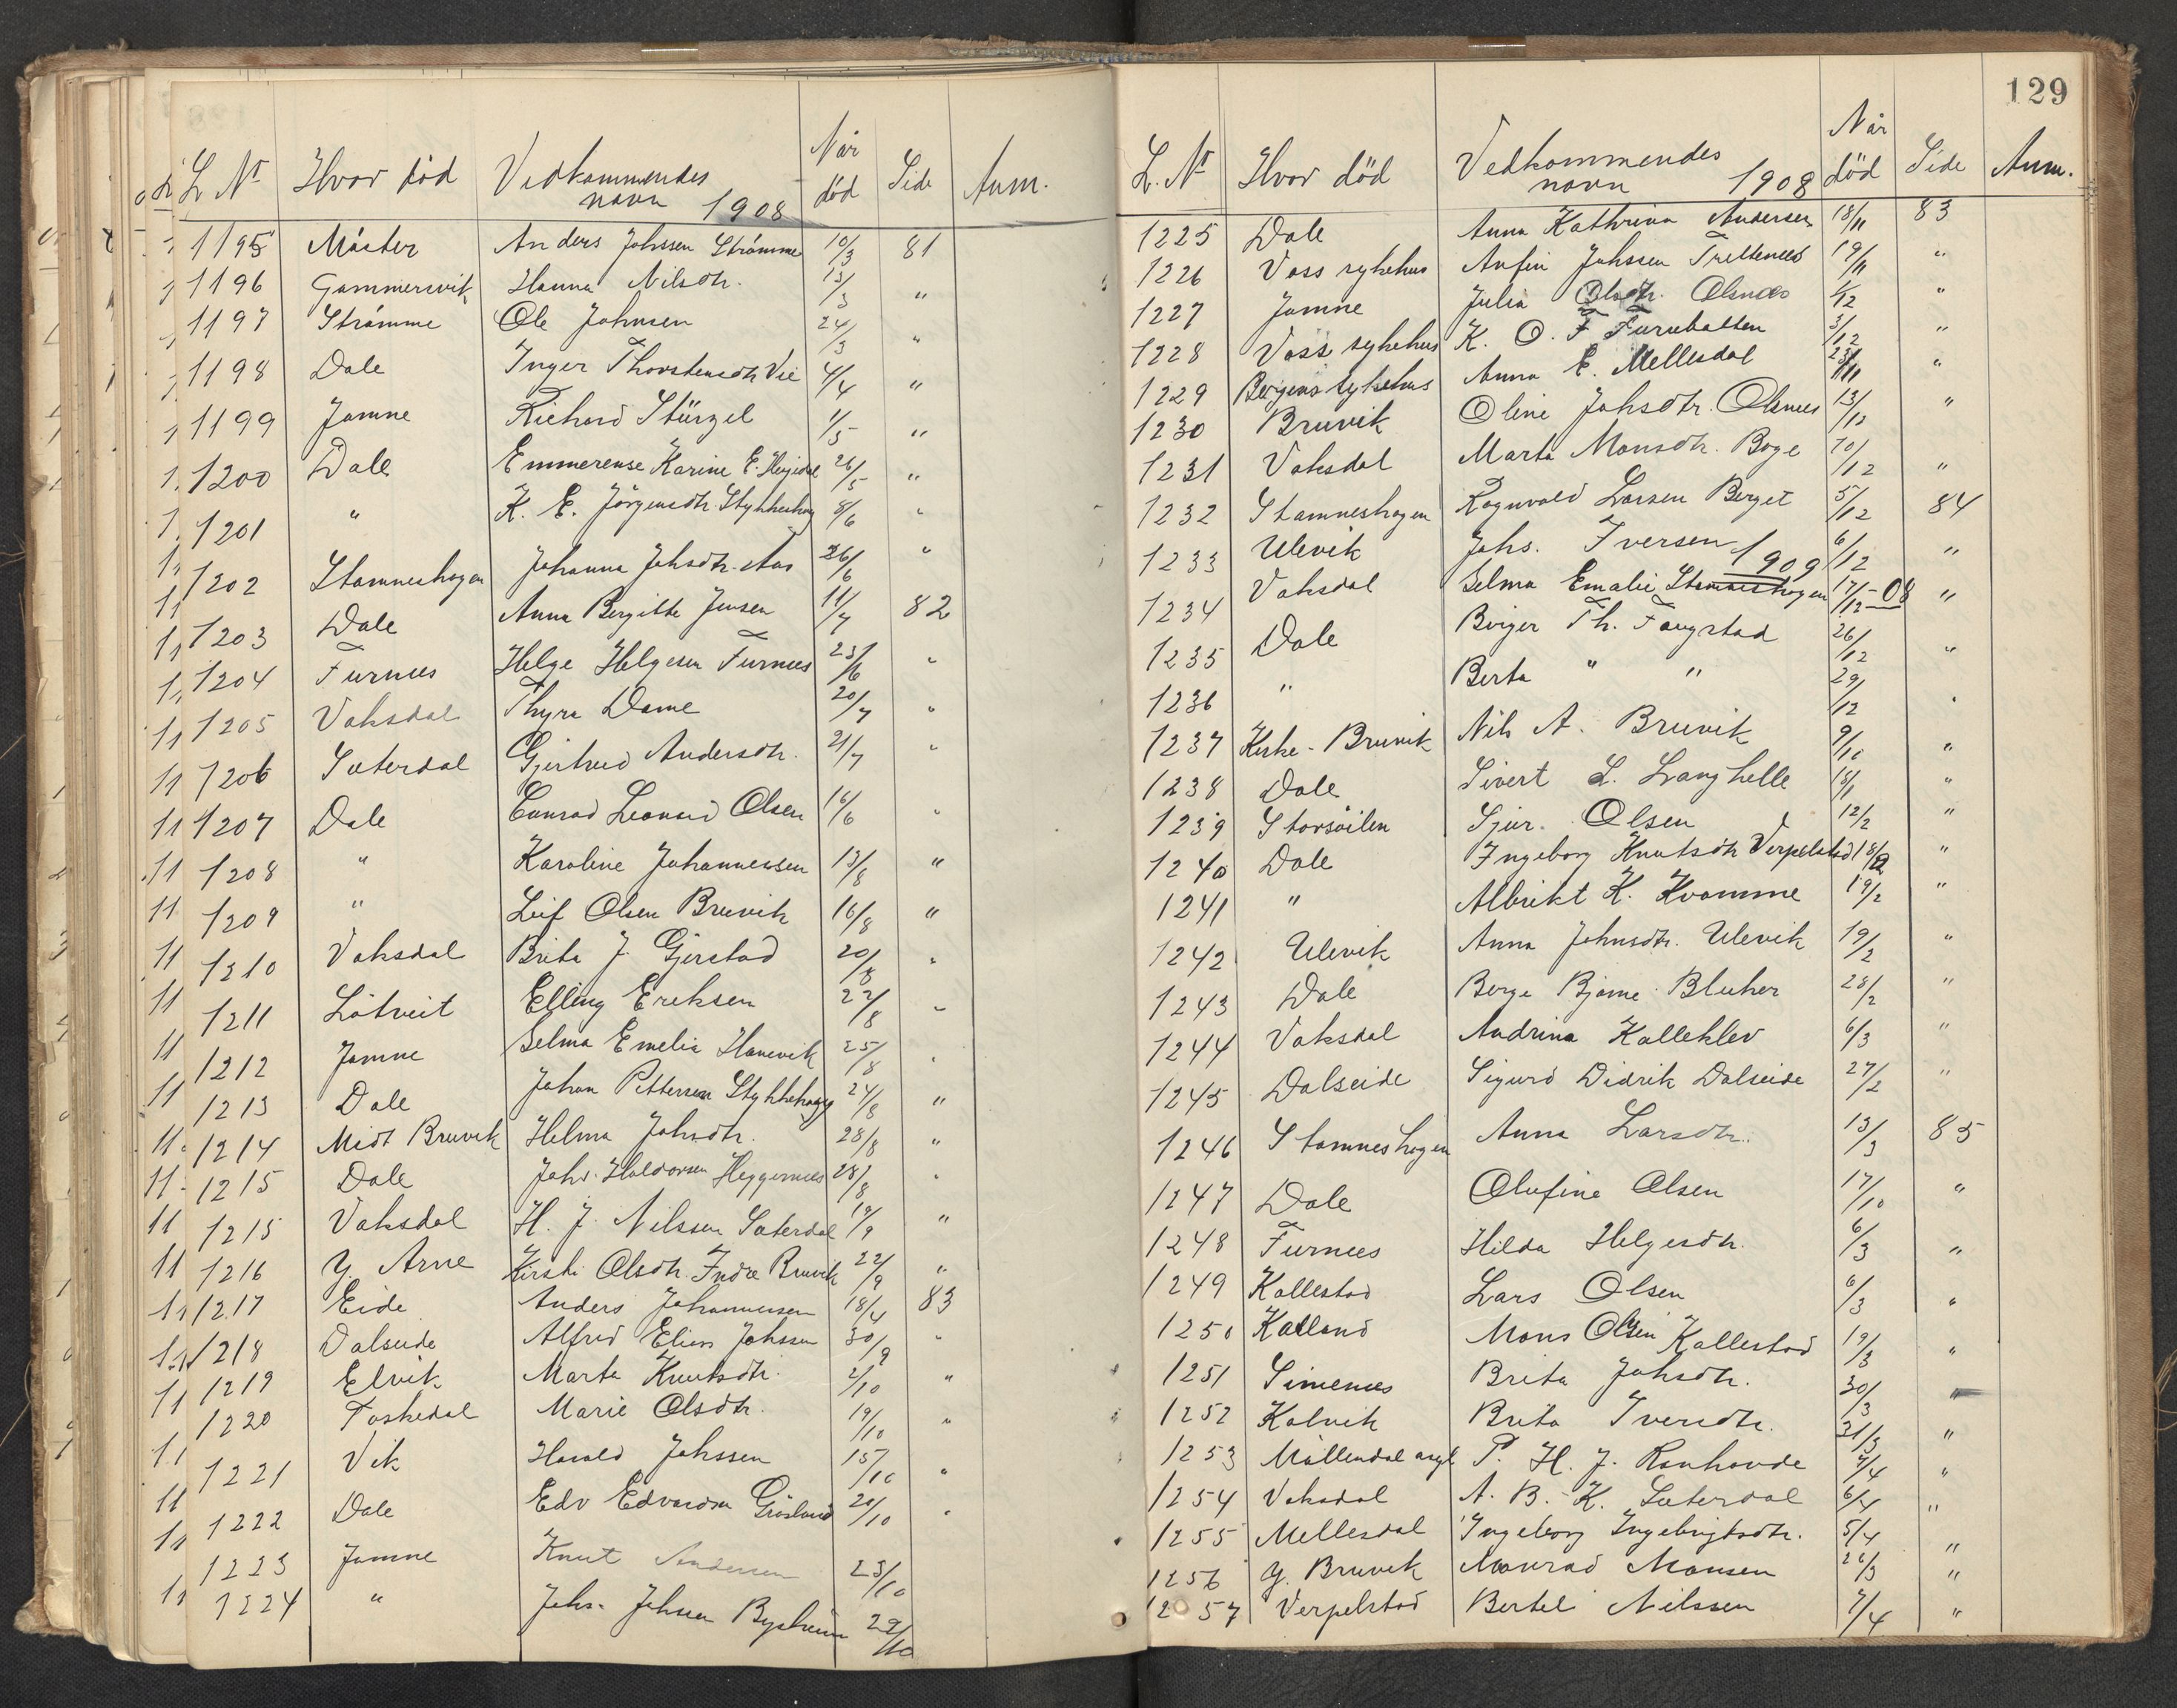 L Nr Hvor död Vedkommendes navn 1908 Når död Side Anm.
1195 Måster Anders Johssen Strömme 10/3 81
1196 Gammersvik Hanna Nilsdtr. 13/3 "
1197 Strömme Ole Johnsen 24/3 "
1198 Dale Inger Thorstensdtr Vie 4/4 "
1199 Jamne Richard Stürzel 1/5 "
1200 Dale Emmerense Karine E. 26/5 "
1201 " K. E. Jörgensdtr. Stykkeshag 8/6 "
1202 Stamneshagen Johanna Johsdtr. Aas 26/6 "
1203 Dale Anna Bergitte Jensen 11/7 82
1204 Furnees Helge Helgesen Furnees 23/6 "
1205 Vaksdal Thyra Dame 20/7 "
1206 Sæterdal Gjertrud Andersdtr. 21/7 "
1207 Dale Conrad Leonard Olsen 16/6 "
1208 " Karoline Johannessen 13/8 "
1209 " Leif Olsen Bruvik 16/8 "
1210 Vaksdal Brita J. Gjerstad 20/8 "
1211 Lötveit Elling Eriksen 22/8 "
1212 Jamne Selma Emelia Hanevik 25/8 "
1213 Dale Johan Pettersen Stykkehagg 24/8 "
1214 Midt Bruvik Helma Johsdtr. 28/8 "
1215 Dale Johs. Haldorsen Heggernees 28/8 "
1215 Vaksdal H. J. Nilssen Sæterdal 14/9 "
1216 Y. Arne Kirsti Olsdtr. Indre Bruvik 22/9 "
1217 Eide Anders Johannessen 18/4 83
1218 Dalseide Alfred Elias Johssen 30/9 "
1219 Elvik Marta Knutsdtr. 2/10 "
1220 Toskedal Marie Olsdtr. 19/10 "
1221 Vik Harald Johssen 15/10 "
1222 Dale Edv Edvardsen Gråsland 20/10 "
1223 Jamne Knut Andersen 23/10
1224 " Johs. Johsen Bysheim 29/10
129
L. Nr Hvor död Vedkommendes navn 1908 Når död Side Anm.
1225 Dale Anna Kathrina Andersen 18/11 83
1226 Voss sykehus Anfin Johssen Trettenees 19/11 "
1227 Jamne Julia Olsdtr. Olsnæs 1/12 "
1228 Voss sykehus K. O. F Furubotten 3/12 "
1229 Bergens sykehus Anna E. Mellesdal 23/11 "
1230 Bruvik Oline Johsdtr. Olsnees 13/12 "
1231 Vaksdal Marta Monsdtr. Boge 10/12 "
1232 Stamneshagen Ragnvald Larsen Berget 5/12 84
1233 Ulevik Johs. Iversen 6/12 "
1909
1234 Vaksdal Selma Emalie Stamneshagen 17/12-08 "
1235 Dale Birger Th. Fangstad 26/12 "
1236 " Berta " " 29/12 "
1237 Kirke-Bruvik Nils A. Bruvik 9/10 "
1238 Dale Sivert L. Langhelle 18/1 "
1239 Storsöilen Sjur. Olsen 12/2 "
1240 Dale Ingeborg Knutsdtr Verpelstad 18/2 "
1241 " Albrikt K. Kvamme 19/2 "
1242 Ulevik Anna Johnsdtr. Ulevik 19/2 "
1243 Dale Borge Bjarne Bluher 28/2 "
1244 Vaksdal Andrina Kalleklev 6/3 "
1245 Dalseide Sigurd Didrik Dalseide 27/2 "
1246 Stamneshagen Anna Larsdtr. 13/3 85
1247 Dale Olufine Olsen 17/10 "
1248 Furnees Hilda Helgesdtr. 6/3 "
1249 Kallestad Lars Olsen 6/3 "
1250 Kalland Mons Olsen Kallestad 19/3 "
1251 Simenees Brita Johsdtr. 30/3 "
1252 Kalvik Brita Iversdtr. 31/3 "
1253 Möllendal asyl P. H. J. Ranhovde 7/4 "
1254 Vaksdal A. B. K. Sæterdal 6/4 "
1255 Mellesdal Ingeborg Ingebrigtsdtr. 5/4 "
1256 Y. Bruvik Monrad Monsen 26/3 "
1257 Verpelstad Bertel Nilssen 7/4 "